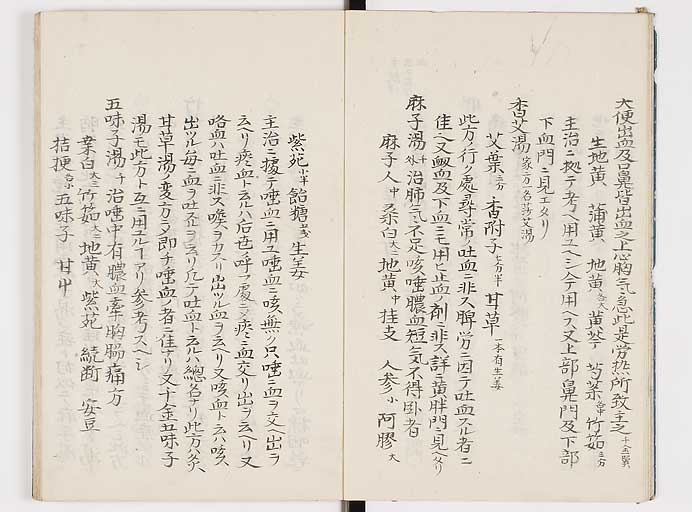 大便出血及口鼻皆出血之上心胸気急此是労热所致主之 千金翼
生地黄 蒲黄 地黄 各大 黄芩 芍薬 各中 竹茹 三分
主治ニ拠テ考ヘ用ユヘシ今用ヘス又上部鼻門及下部
下血門ニ見エタリ
香艾湯 家方 一名蒻艾湯
艾葉 三分 香附子 七分半 甘草 一本有生姜
此方ノ行ク處尋常ノ吐血ニ非ス脾労ニ因テ吐血スル者ニ
佳ニ又衂血及下血ニモ用ヒ止血ノ剤ニ非ス詳ニ黄胖門ニ見ヘタリ
麻子湯 外千 治肺気不足咳唾膿血短気不得卧者
麻子人 中 桑白 大三 地黄 中 桂支 人参 小 阿膠 大
紫苑 小半 飴糖 生姜
主治ニ據テ唾血ニ用ユ唾血ニ咳無ク只唾ニ血ヲ交ヘ出ヲ
云ヘリ痰血ト云ルハ后世呼フ處ニテ痰ニ血交リ出ヲ云ヘリ又
咯血ハ吐血ニ非ス喉ヲカスリ出ツル血ヲ云ヘリ又咳血ト云ハ咳ス
出ツル毎ニ血ヲ吐スルヲ云リ凡テ吐血ト云ルハ總名ナリ此方ハ灸
甘草湯ノ変方ニテ即チ唾血ノ者ニ佳ナリ又千金五味子
湯モ此方ト互ニ用ユルコアリ参考スヘシ
五味子湯 千 治唾中有膿血牽胸脇痛方
桑白 大三 竹茹 大三 地黄 大 紫苑 續断 安豆
桔梗 各小 五味子 甘艸